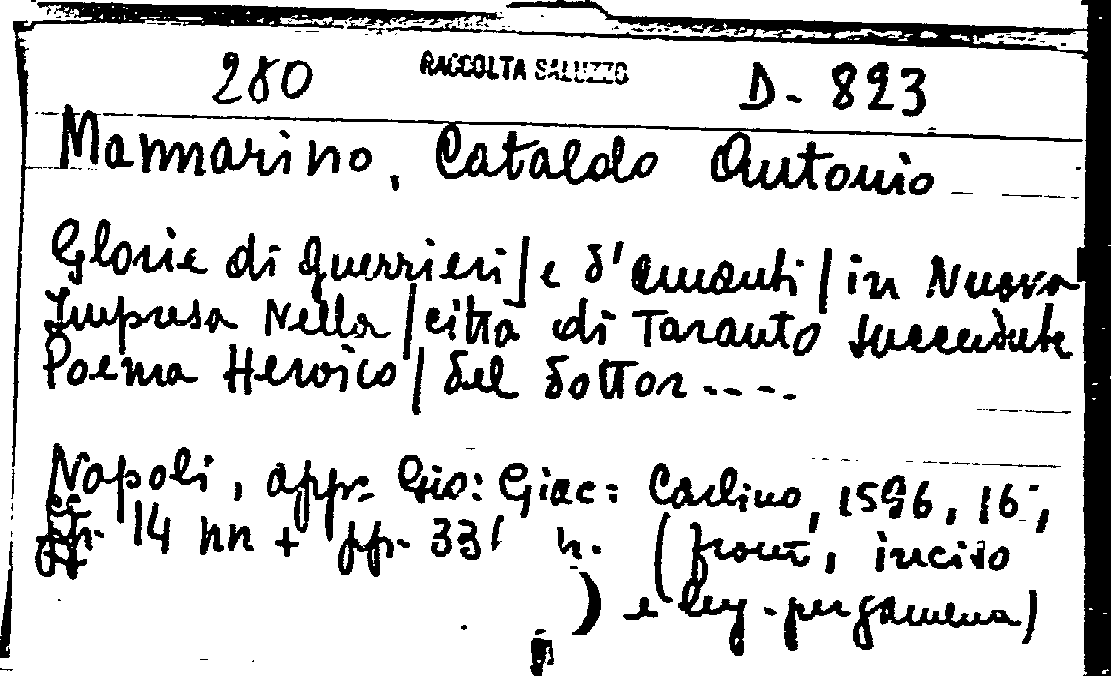 280 RACCOLTA SALUZZO D- 823
Mannarino, Cataldo Antonio
Glorie di guerrieri | e d'amanti | in Nuova
Impresa Nella | città di Taranto succedute
Poema Heroico | del dottor ----.
Napoli, app= Gio: Giac: Carlino, 1596, 16°,
pp. 14 nn + pp. 331 n. (front, inciso
) e leg. pergamena)